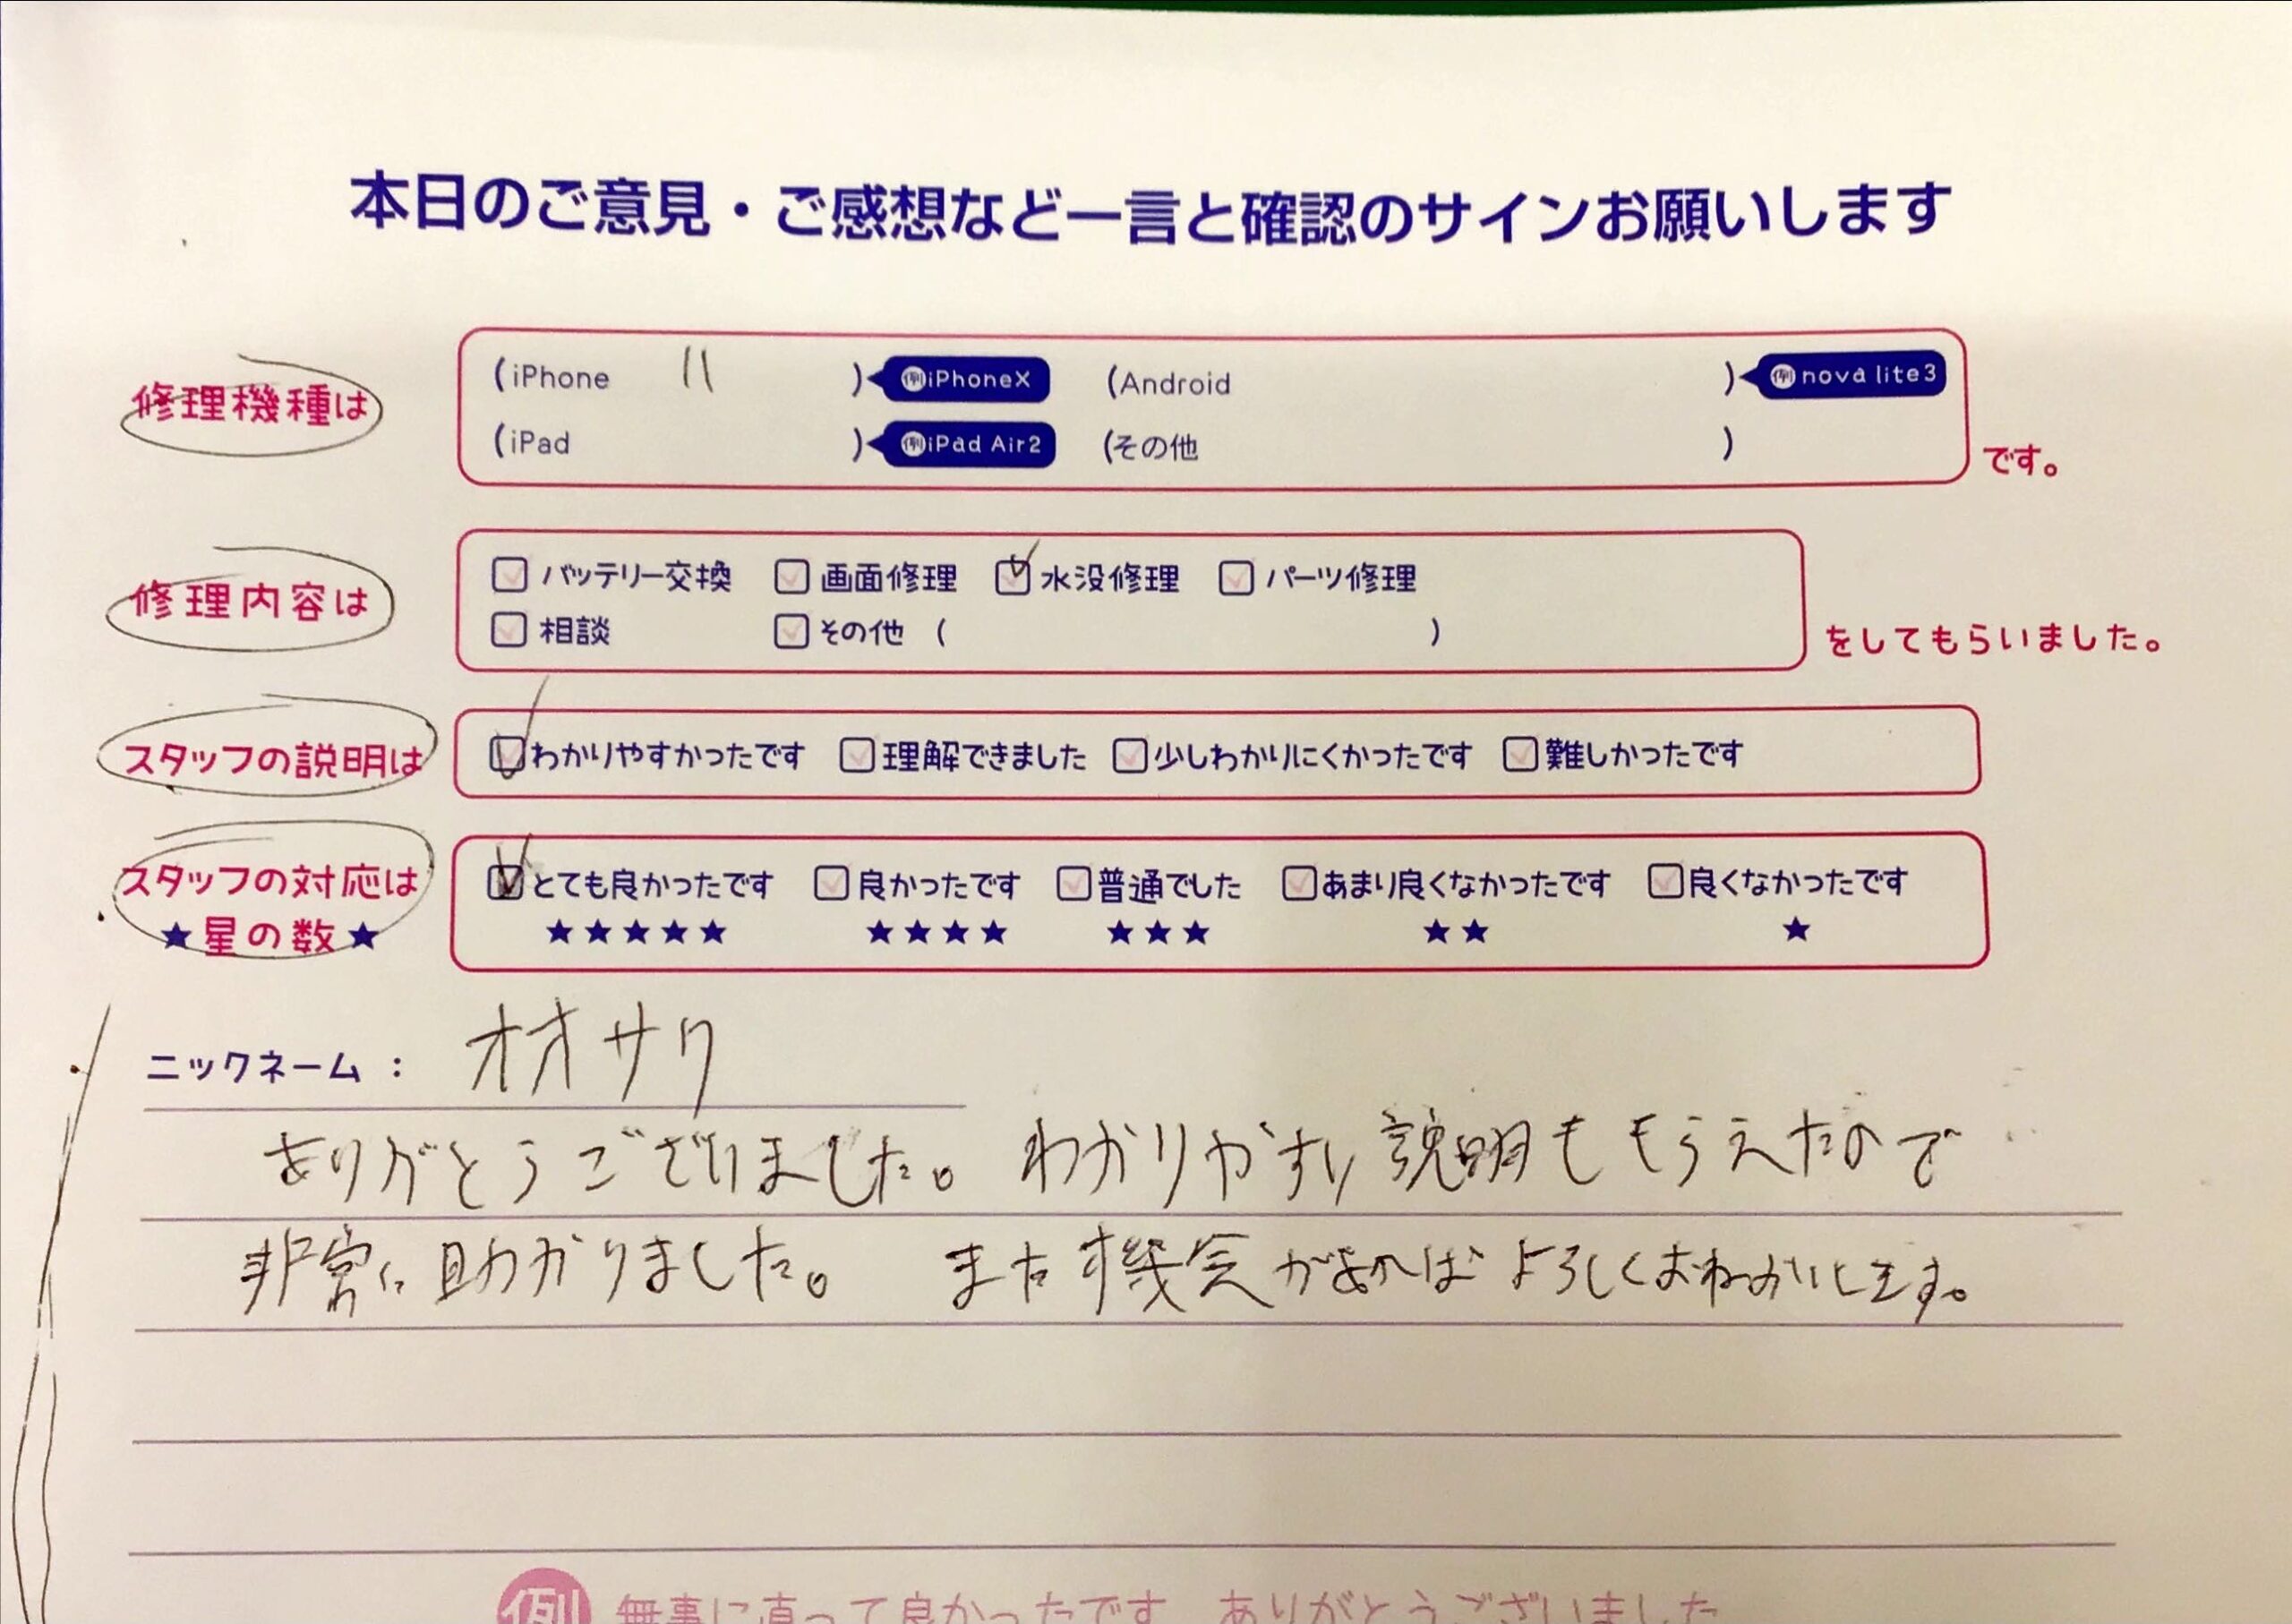 本日のご意見・ご感想など一言と確認のサインお願いします
修理機種は
(iPhone 11 ) 例iPhoneX (Android ) 例nova lite3
(iPad ) 例iPad Air2 (その他 ) です。
修理内容は
バッテリー交換 画面修理 水没修理 パーツ修理
相談 その他 ( ) をしてもらいました。
スタッフの説明は
わかりやすかったです 理解できました 少しわかりにくかったです 難しかったです
スタッフの対応は
★星の数★
とても良かったです 良かったです 普通でした あまり良くなかったです 良くなかったです
★★★★★ ★★★★ ★★★ ★★ ★
ニックネーム： オオサワ
ありがとうございました。わかりやすい説明ももらえたので
非常に助かりました。また機会があればよろしくおねがいします。
例 無事に直って良かったです ありがとうございました